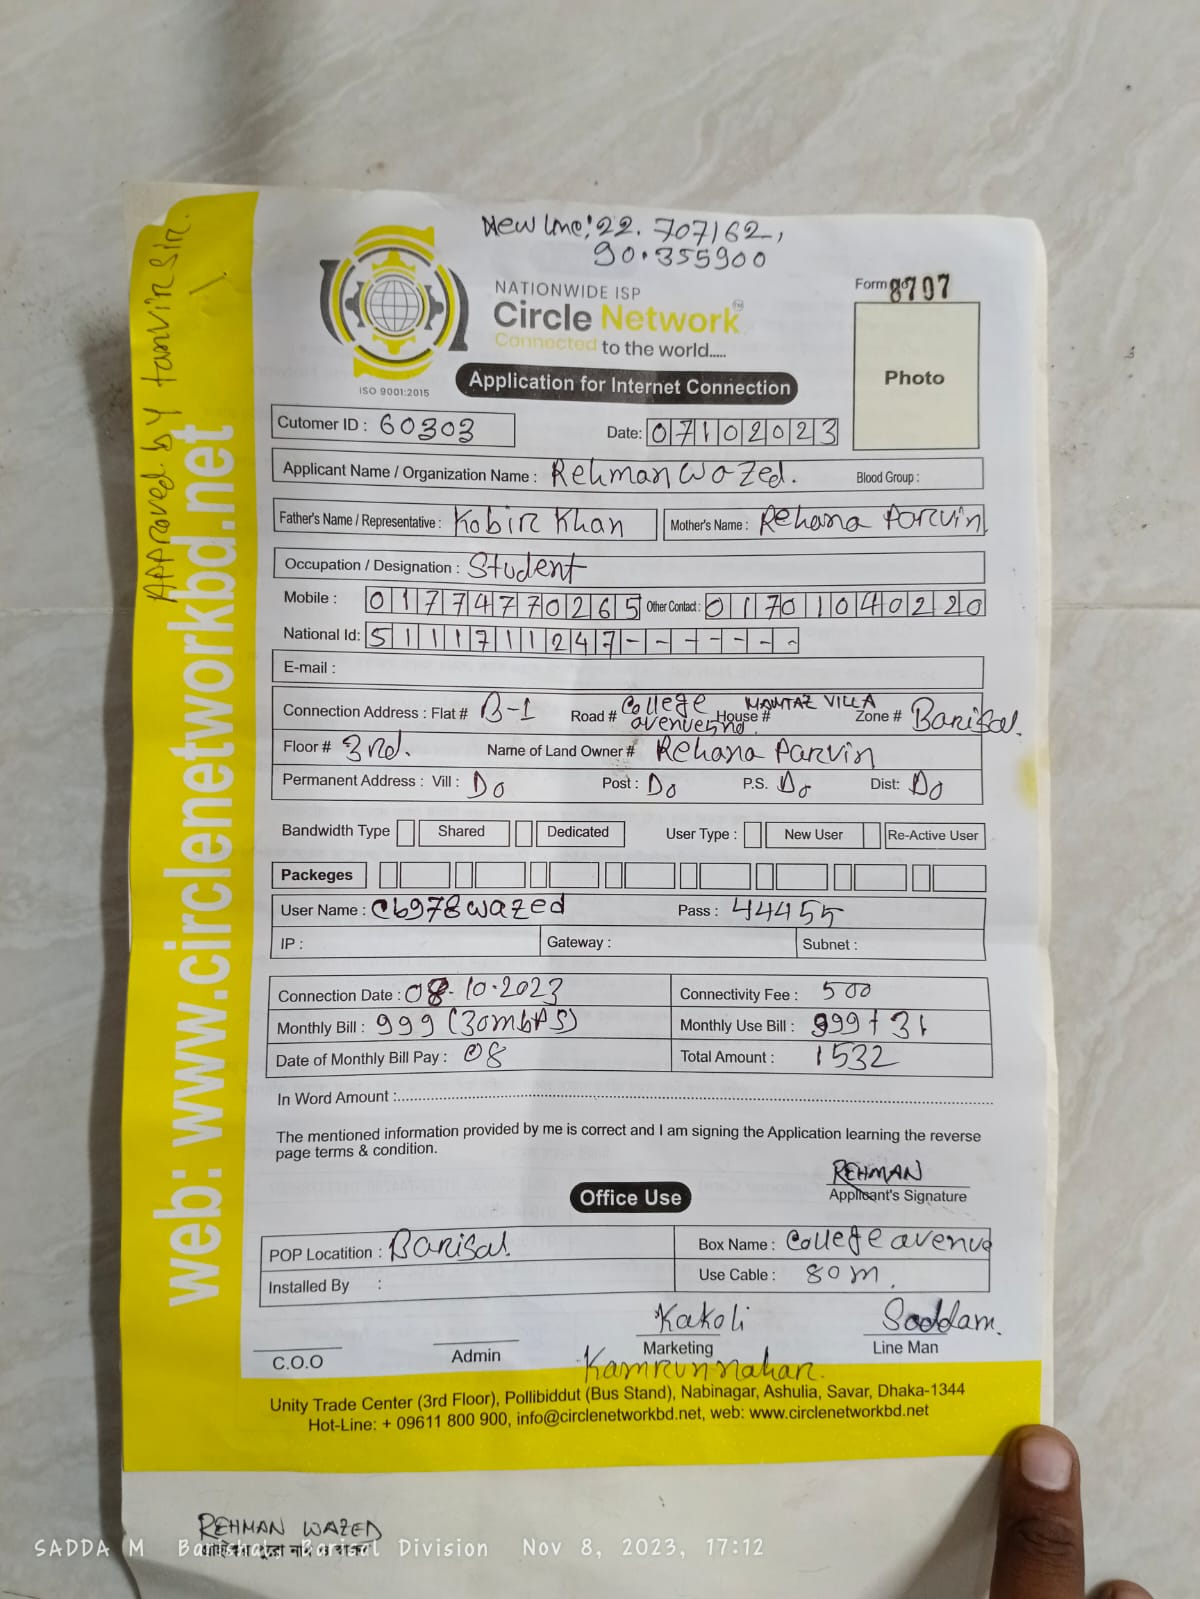 New Line: 22.707162,
90.355900
Approved by tanvir sir.
web: www.circlenetworkbd.net
NATIONWIDE ISP
Circle Network
Connected to the world.....
ISO 9001:2015
Application for Internet Connection
Form 8707
Photo
Cutomer ID : 60303
Date: 07102023
Applicant Name / Organization Name : Rehman Wazed. Blood Group :
Father's Name / Representative : Kobir Khan Mother's Name : Rehana Parvin
Occupation / Designation : Student
Mobile : 01774770265 Other Contact : 01701040220
National Id: 5111711247- - - - - - -
E-mail :
Connection Address : Flat # B-1 Road # College avenue 5 no. House # MAMTAZ VILLA Zone # Barisal.
Floor # 3rd. Name of Land Owner # Rehana Parvin
Permanent Address : Vill : Do Post : Do P.S. Do Dist: Do
Bandwidth Type Shared Dedicated User Type : New User Re-Active User
Packeges
User Name : cb978wazed Pass : 44455
IP : Gateway : Subnet :
Connection Date : 08-10-2023 Connectivity Fee : 500
Monthly Bill : 999 (30mbps) Monthly Use Bill : 999 + 31
Date of Monthly Bill Pay : 08 Total Amount : 1532
In Word Amount :
The mentioned information provided by me is correct and I am signing the Application learning the reverse
page terms & condition.
REHMAN
Applicant's Signature
Office Use
POP Locatition : Barisal. Box Name : College avenue
Installed By : Use Cable : 80m.
Kakoli Saddam.
C.O.O Admin Marketing Line Man
Kamrunnahar.
Unity Trade Center (3rd Floor), Pollibiddut (Bus Stand), Nabinagar, Ashulia, Savar, Dhaka-1344
Hot-Line: + 09611 800 900, info@circlenetworkbd.net, web: www.circlenetworkbd.net
REHMAN WAZED
SADDA M Barishal, Barisal Division Nov 8, 2023, 17:12